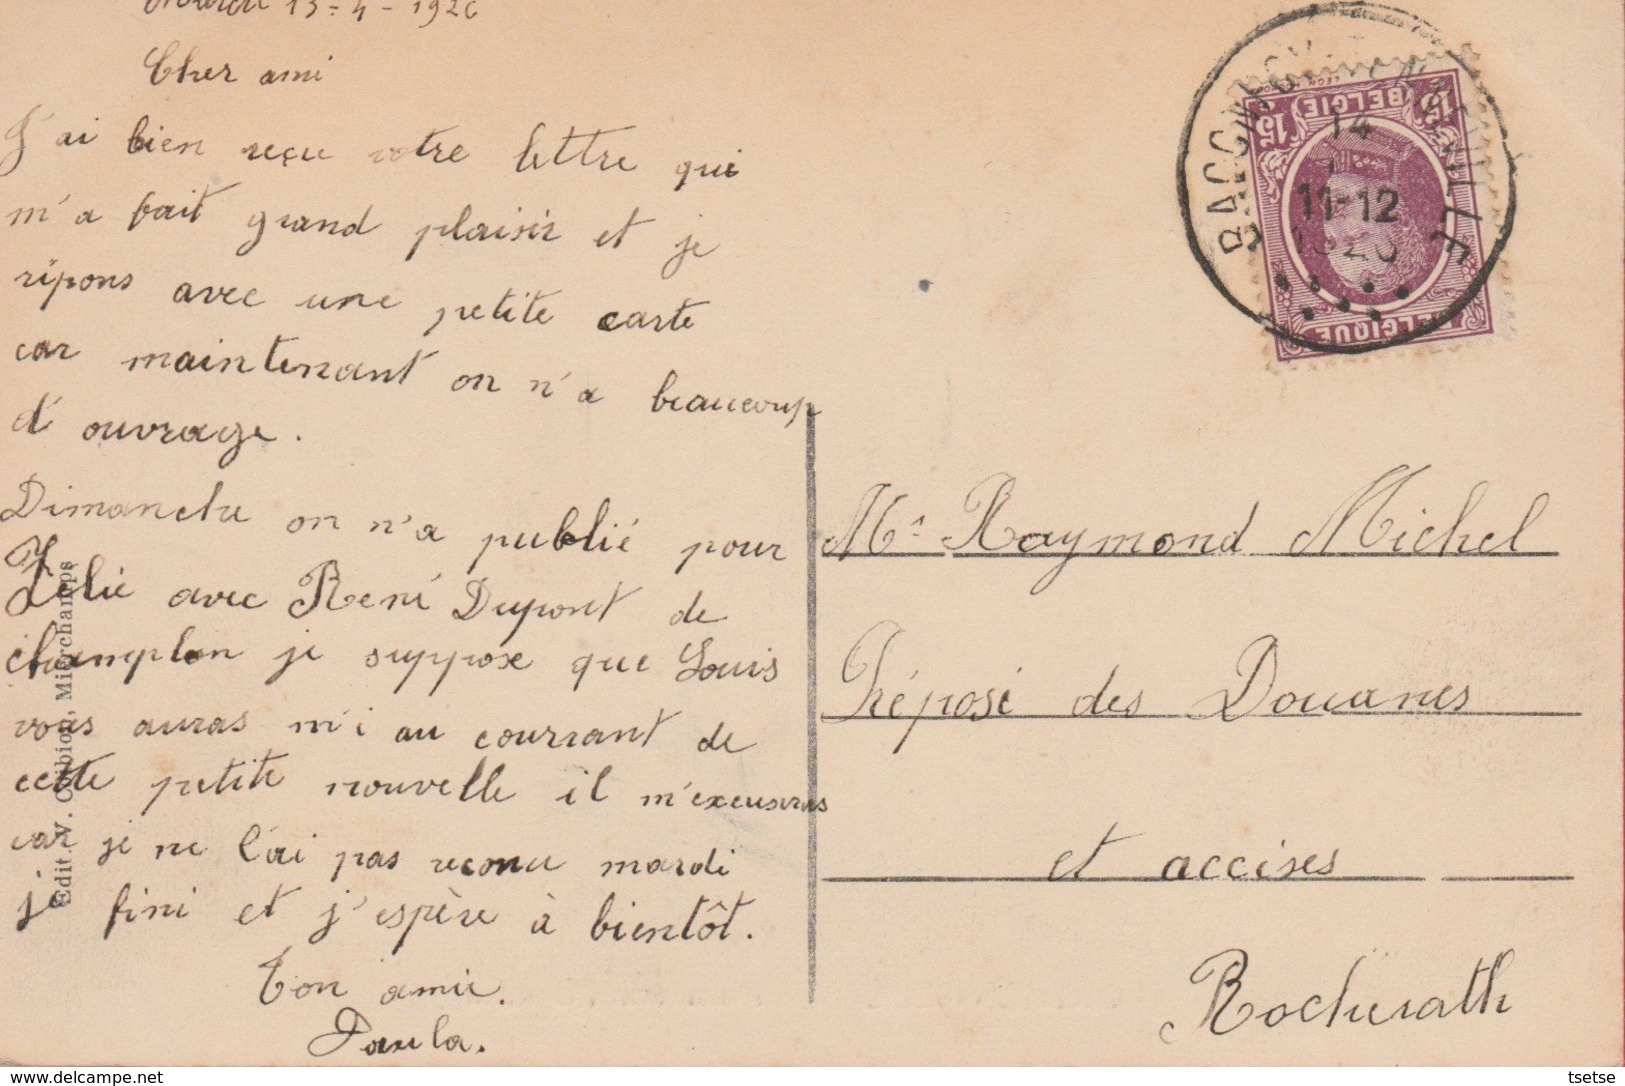 13-4-1926
Cher ami
J'ai bien reçu votre lettre qui
m'a fait grand plaisir et je
répons avec une petite carte
car maintenant on n'a beaucoup
d'ouvrage.
Dimanche on n'a publié pour
Zélie avec René Dupont de
champlon je suppose que Louis
vous auras m'i au courrant de
cette petite nouvelle il m'excuseras
car je ne l'ai pas reconu mardi
je fini et j'espère à bientôt.
Ton amie.
Paula.
Edit. V. Miérchamps
BELGIE
15
15
14
11-12
1926
BELGIQUE
Mr. Raymond Michel
Préposé des Douanes
et accises
Rocherath
tsetse
www.delcampe.net